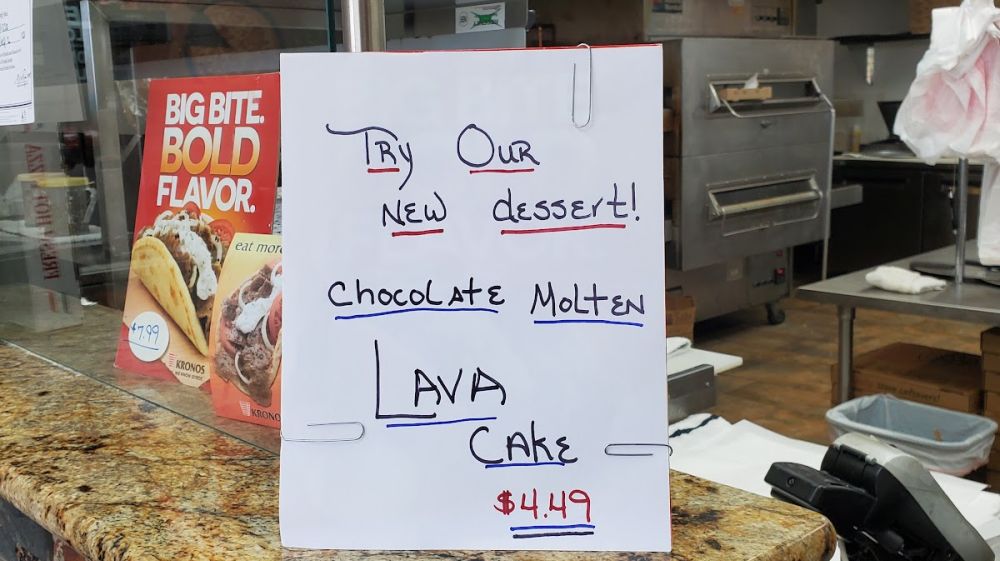 BIG BITE.
BOLD
FLAVOR.
eat more
$7.99
KRONOS
KRONO
Try Our
NEW dessert!
Chocolate Molten
LAVA
CAKE
$4.49